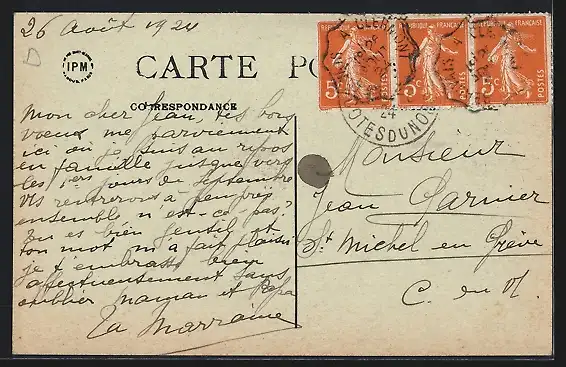 26 Août 1924
D
IPM
CARTE PO
CORRESPONDANCE
RÉPUBLIQUE FRANÇAISE
5c
POSTES
5c
POSTES
5c
POSTES
24
COTES DU NO
Mon cher Jean, tes bons
voeux me parviennent
ici où je suis au repos
en famille jusque vers
les 1ers jours de Septembre
rentrerons à peu près
ensemble, n'est-ce-pas?
Tu es bien gentil et
ton mot m'a fait plaisir
je t'embrasse bien
affectueusement sans
oublier maman et Papa
Ta Marraine
Monsieur
Jean Garnier
St Michel en Grève
C. du N.